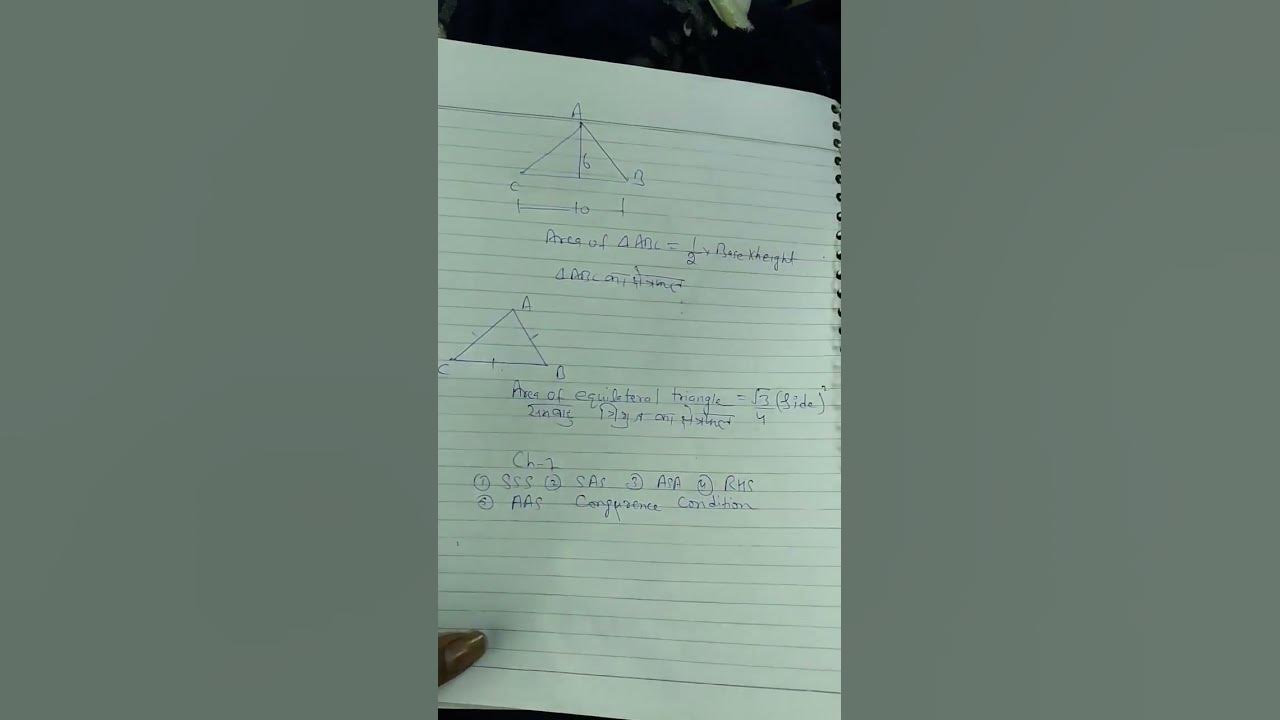 A
6
C B
10
Area of ΔABC = 1/2 × Base × height
ΔABC का क्षेत्रफल
A
C B
Area of equilateral triangle = √3/4 (Side)²
समबाहु त्रिभुज का क्षेत्रफल
Ch-7
① SSS ② SAS ③ ASA ④ RHS
⑤ AAS Congurence Condition